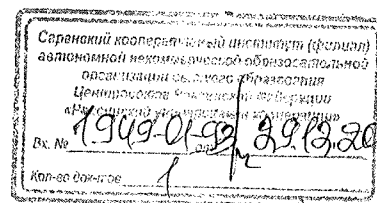 Саранский кооперативный институт (филиал)
автономной некоммерческой образовательной
организации высшего образования
Центросоюза Российской Федерации
«Российский университет кооперации»
Вх. № 1949-01-93/ от 29.12.20
Кол-во док-тов 1